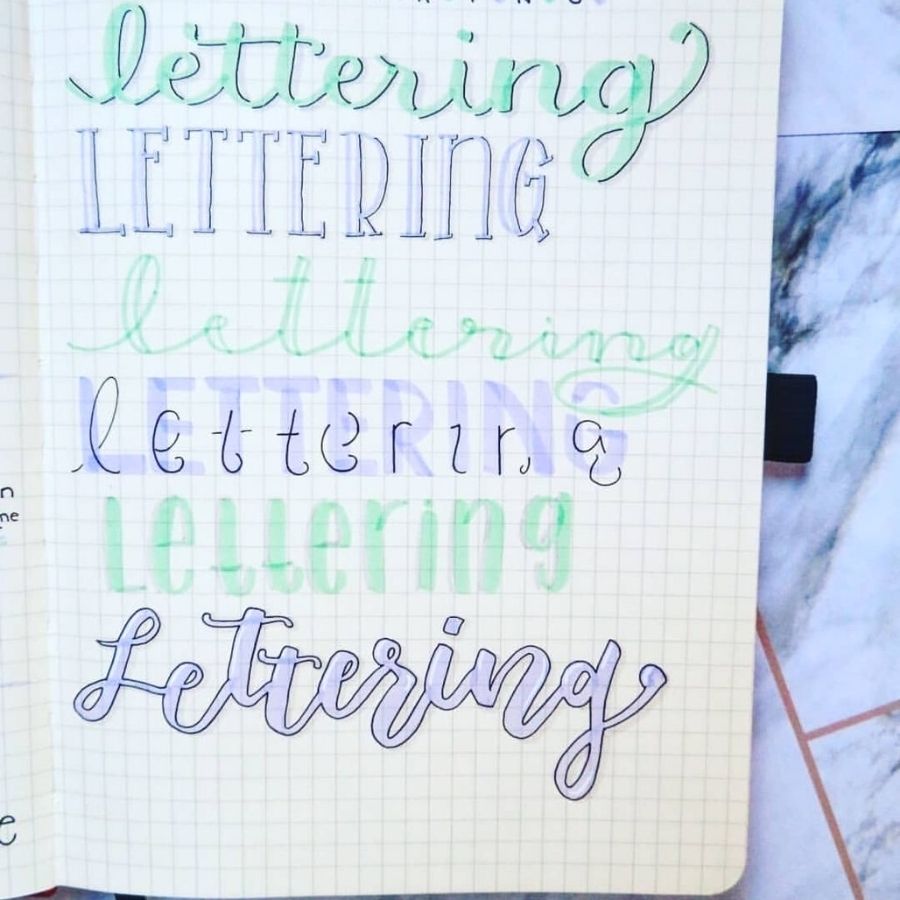 lettering
LETTERING
lettering
LETTERING
lettering
Lettering
Lettering